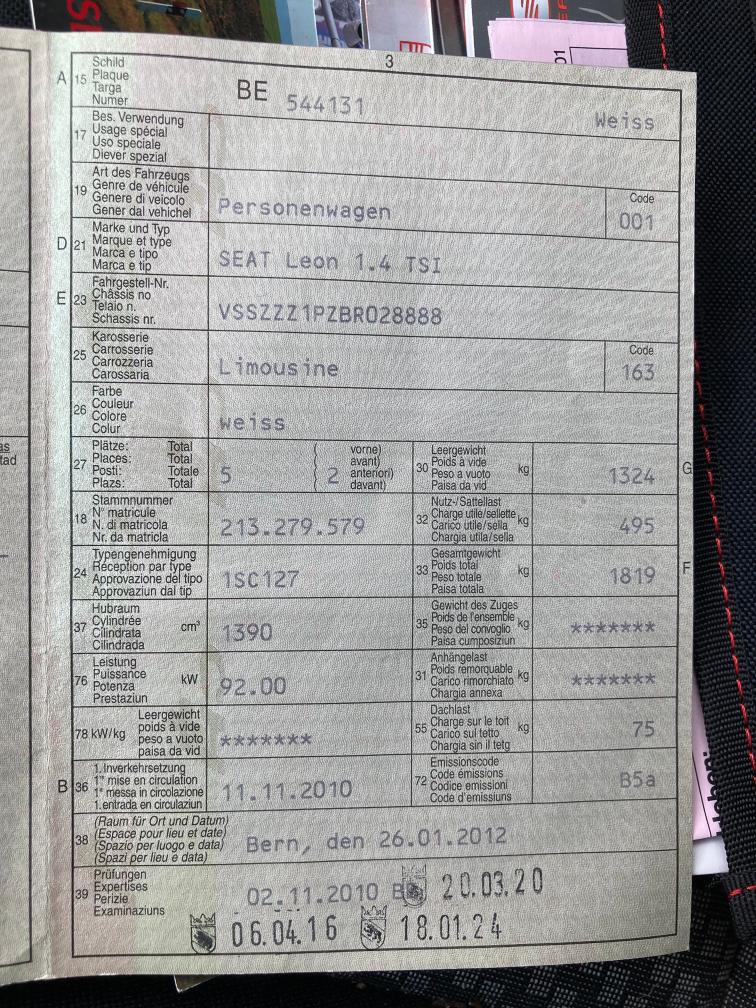 3
A 15 Schild
Plaque
Targa
Numer
BE 544131 Weiss
17 Bes. Verwendung
Usage spécial
Uso speciale
Diever spezial
19 Art des Fahrzeugs
Genre de véhicule
Genere di veicolo
Gener dal vehichel
Personenwagen
Code
001
D 21 Marke und Typ
Marque et type
Marca e tipo
Marca e tip
SEAT Leon 1.4 TSI
E 23 Fahrgestell-Nr.
Châssis no
Telaio n.
Schassis nr.
VSSZZZ1PZBR028888
25 Karosserie
Carrosserie
Carrozzeria
Carossaria
Limousine
Code
163
26 Farbe
Couleur
Colore
Colur
weiss
27 Plätze: Total
Places: Total
Posti: Totale
Plazs: Total
5
( 2 vorne)
avant)
anteriori)
davant)
30 Leergewicht
Poids à vide
Peso a vuoto
Paisa da vid
kg
1324
G
18 Stammnummer
N° matricule
N. di matricola
Nr. da matricla
213.279.579
32 Nutz-/Sattellast
Charge utile/sellette
Carico utile/sella
Chargia utila/sella
kg
495
24 Typengenehmigung
Réception par type
Approvazione del tipo
Approvaziun dal tip
1SC127
33 Gesamtgewicht
Poids total
Peso totale
Paisa totala
kg
1819
F
37 Hubraum
Cylindrée
Cilindrata
Cilindrada
cm³
1390
35 Gewicht des Zuges
Poids de l'ensemble
Peso del convoglio
Paisa cumposiziun
kg
*******
76 Leistung
Puissance
Potenza
Prestaziun
kW
92.00
31 Anhängelast
Poids remorquable
Carico rimorchiato
Chargia annexa
kg
*******
78 kW/kg Leergewicht
poids à vide
peso a vuoto
paisa da vid
*******
55 Dachlast
Charge sur le toit
Carico sul tetto
Chargia sin il tetg
kg
75
B 36 1. Inverkehrsetzung
1re mise en circulation
1a messa in circolazione
1. entrada en circulaziun
11.11.2010
72 Emissionscode
Code émissions
Codice emissioni
Code d'emissiuns
B5a
38 (Raum für Ort und Datum)
(Espace pour lieu et date)
(Spazio per luogo e data)
(Spazi per lieu e data)
Bern, den 26.01.2012
39 Prüfungen
Expertises
Perizie
Examinaziuns
02.11.2010 20.03.20
06.04.16 18.01.24